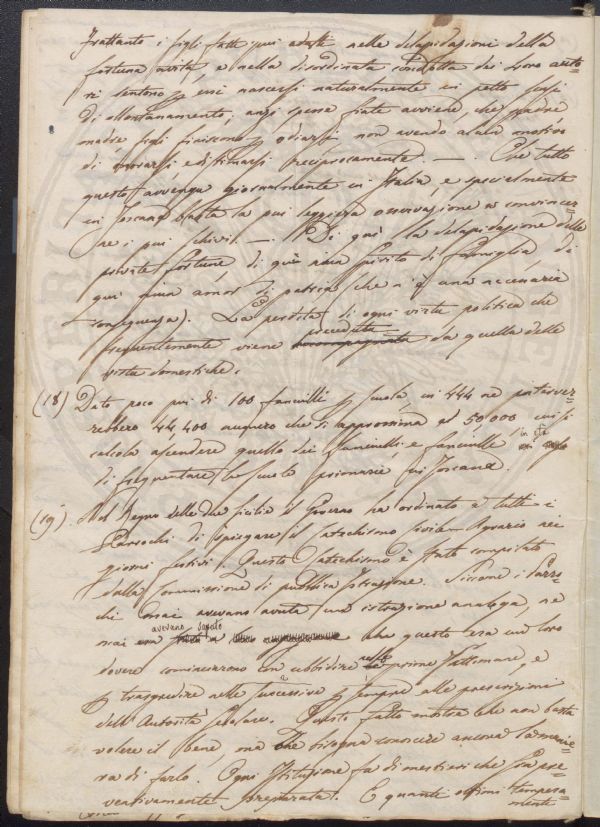 Frattanto i figli fatti più adulti nelle delapidazioni della
fortuna avita, e nella disordinata condotta dei loro auto-
ri sentono p essi nascersi naturalmente in petto sensi
di allontanamento, anzi spesse fiate avviene, che padre
madre, figli finiscono p odiarsi non avendo alcun motivo
di amarsi, e di stimarsi reciprocamente. —. Che tutto
questo avvenga giornalmente in Italia, e specialmente
in Toscana basta la più leggiera osservazione a convincer=
ne i più schivi. —. Di quì la delapidazione delle
private fortune di quì niun spirito di Famiglia, di
qui niun amor di patria che n'è una necessaria
conseguenza). La perdita di ogni virtù politica che
frequentemente viene preceduta da quella delle
virtù domestiche.
(18) Dato poco più di 100 fanciulli p scuola, in 444 ne interver=
rebbero 44,400 numero che si approssima ai 50,000 cui si
calcola ascendere quello dei fanciulli e fanciulle in età
di frequentare le scuole primarie in Toscana.
(19) Nel Regno delle due Sicilie il Governo ha ordinato a tutti i
Parrochi di spiegare il Catechismo Civile Agrario nei
giorni festivi. Questo Catechismo è stato compilato
dalla Commissione di pubblica Istruzione. Siccome i Parro=
chi mai avevano avuta una istruzione analoga, nè
mai avevano saputo che questo era un loro
dovere cominciarono con ubbidire nelle prime settimane, e
p trasgredire nelle successive p sempre alle prescrizioni
dell'Autorità secolare. Questo fatto mostra che non basta
volere il bene, ma che bisogna conoscere ancora la manie=
ra di farlo. Ogni Istituzione fa di mestieri che sia pre=
ventivamente preparata. E quanti ottimi tempera=
mente